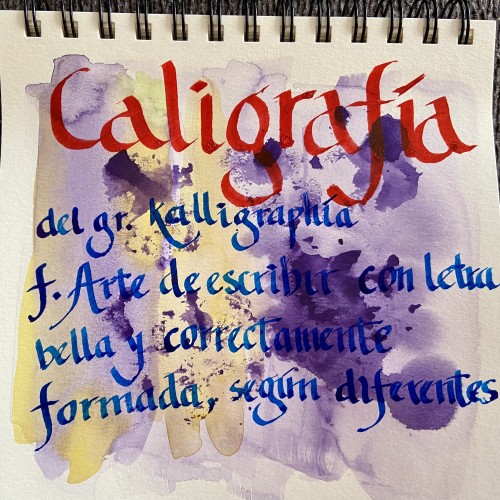 Caligrafía
del gr. Kalligraphía
f. Arte de escribir con letra
bella y correctamente
formada, según diferentes